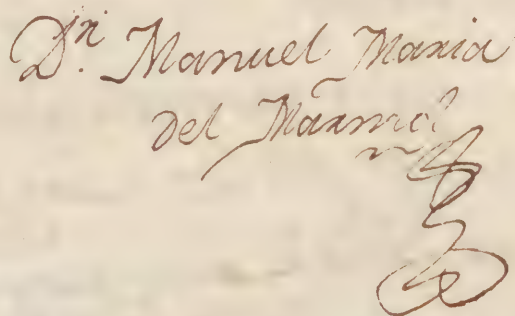 Dn. Manuel Maria
del Mármol